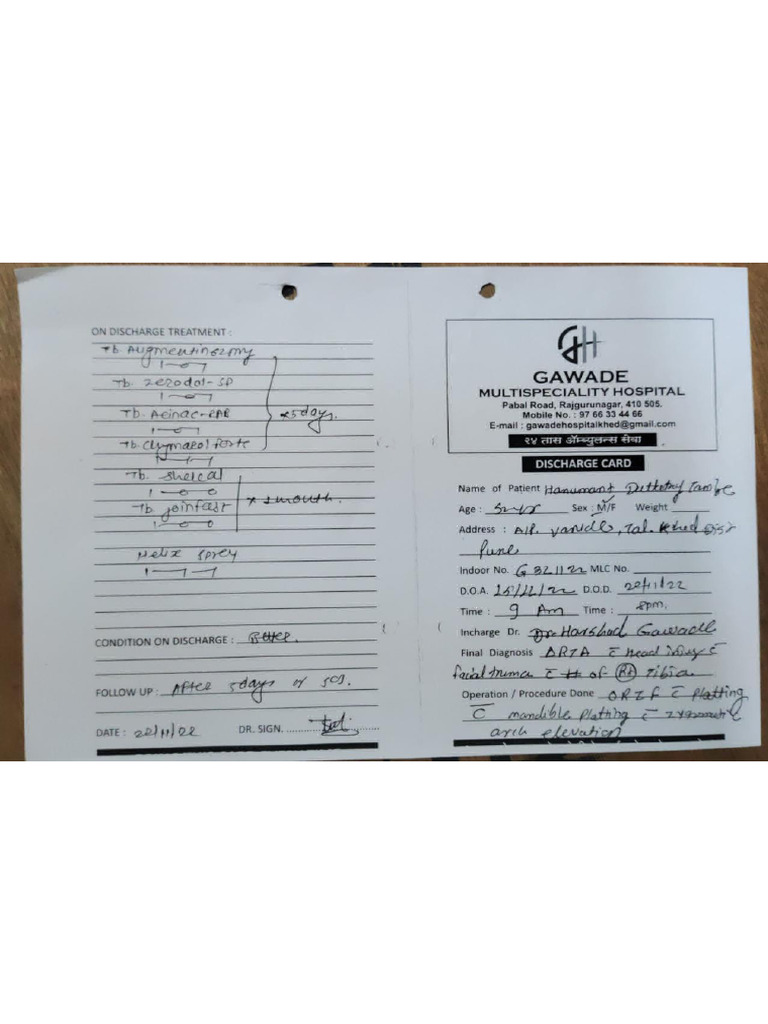 ON DISCHARGE TREATMENT :
Tb. Augmentin
1 — 0 — 1
Tb. Zerodol-SP
1 — 0 — 1
Tb. Aeinac-RAB
1 — 0 — 1
x 5 days.
Tb. Chymarol forte
1 — 1 — 1
Tb. Shelcal
1 — 0 — 0
x 1 month.
Tb. joinfast
1 — 0 — 0
Helix Sprey
1 — 1 — 1
CONDITION ON DISCHARGE :
FOLLOW UP : After 5 days or SOS.
DATE : 22/11/22 DR. SIGN.
GH
GAWADE
MULTISPECIALITY HOSPITAL
Pabal Road, Rajgurunagar, 410 505.
Mobile No. : 97 66 33 44 66
E-mail : gawadehospitalkhed@gmail.com
२४ तास ॲम्ब्युलन्स सेवा
DISCHARGE CARD
Name of Patient Hanumant Tambe
Age : Sex : M/F Weight
Address : A/P. Tal. Khed Dist
Pune
Indoor No. G 3211 22 MLC No.
D.O.A. D.O.D. 22/11/22
Time : 9 Am Time : 8pm.
Incharge Dr. Dr. Harshad Gawade
Final Diagnosis c̄ head injury c̄
facial truma c̄ # of Rt tibia
Operation / Procedure Done ORIF c̄ Platting
c̄ mandible platting c̄
arch elevation